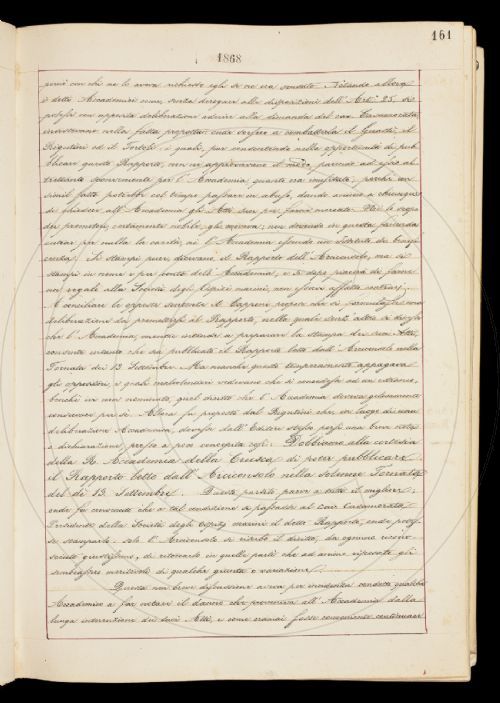 161
1868
poiché con chi ne lo aveva richiesto egli se ne era scusato. Notando allora
i detti Accademici come, senza derogare alle disposizioni dell'Art.° 25, si
potesse con apposita deliberazione aderire alla domanda del cav. Casamorata
insistevano nella fatta proposta; onde sorsero a combatterla il Guasti, il
Rigutini ed il Tortoli, i quali, pur consentendo nella opportunità di pub-
blicare questo Rapporto, non ne approvavano il modo, parendo ad essi al
trettanto sconveniente per l'Accademia, quanto era inusitato; perché un
simil fatto potrebbe col tempo passare in abuso, dando animo a chiunque
di chiedere all'Accademia gli Atti suoi per farne mercato. Né le ragio
dei promotori, certamente nobile, gli moveva; non dovendo in questa faccenda
entrar per nulla la carità, né l'Accademia essendo un istituto di benefi
cenza. Si stampi pure, dicevano, il Rapporto dell'Arciconsolo, ma si
stampi in nome e per conto dell'Accademia; e se dopo piacerà di farne
un regalo alla Società degli Ospizi marini, non essere affatto contrari.
A conciliare le opposte sentenze il Capponi propose che si formulasse una
deliberazione da premettersi al Rapporto, nella quale senz'altro si dicesse
che l'Accademia, mentre intende a preparare la stampa dei suoi Atti,
consente intanto che sia pubblicato il Rapporto letto dall'Arciconsolo nella
Tornata dei 13 Settembre. Ma neanche questo temperamento appagava
gli oppositori, i quali malvolentieri vedevano che si concedesse ad un estraneo,
benché in via eccezionale, quel diritto che l'Accademia doveva gelosamente
conservare per sé. Allora fu proposto dal Rigutini che, in luogo di una
deliberazione Accademica, dovesse dall'Editore stesso porsi una breve nota
o dichiarazione, presso a poco concepita così: Dobbiamo alla cortesia
della R. Accademia della Crusca di poter pubblicare
il Rapporto letto dall'Arciconsolo nella solenne Tornata
del dì 13 Settembre. Questo partito parve a tutti il migliore;
onde fu convenuto che a tal condizione si passasse al Cav. Casamorata,
Presidente della Società degli Ospizi marini il detto Rapporto, onde potes-
se stamparlo: solo l'Arciconsolo si riserbò il diritto, da ognuno ricono-
sciuto giustissimo, di ritoccarlo in quelle parti che ad amore rispetto gli
sembrassero meritevoli di qualche giunta o variazione.
Questa non breve discussione aveva per incidenza condotto qualche
Accademico a far notare il danno che proveniva all'Accademia dalla
lunga interruzione dei suoi Atti, e come oramai fosse conveniente continuare